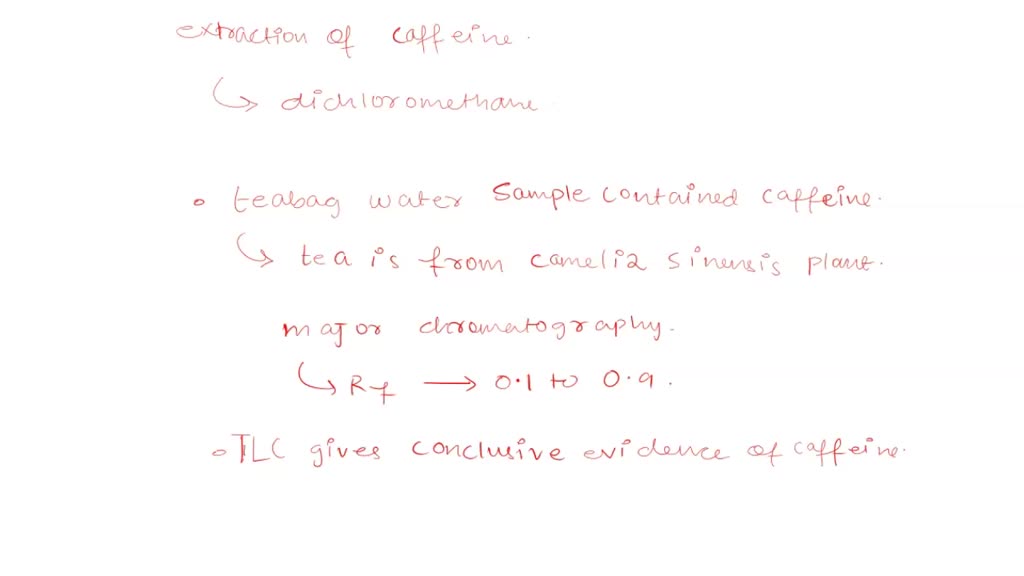 extraction of caffeine.
↳ dichloromethane
• teabag water sample contained caffeine.
↳ tea is from camelia sinensis plant.
major chromatography.
↳ Rf → 0.1 to 0.9.
• TLC gives conclusive evidence of caffeine.